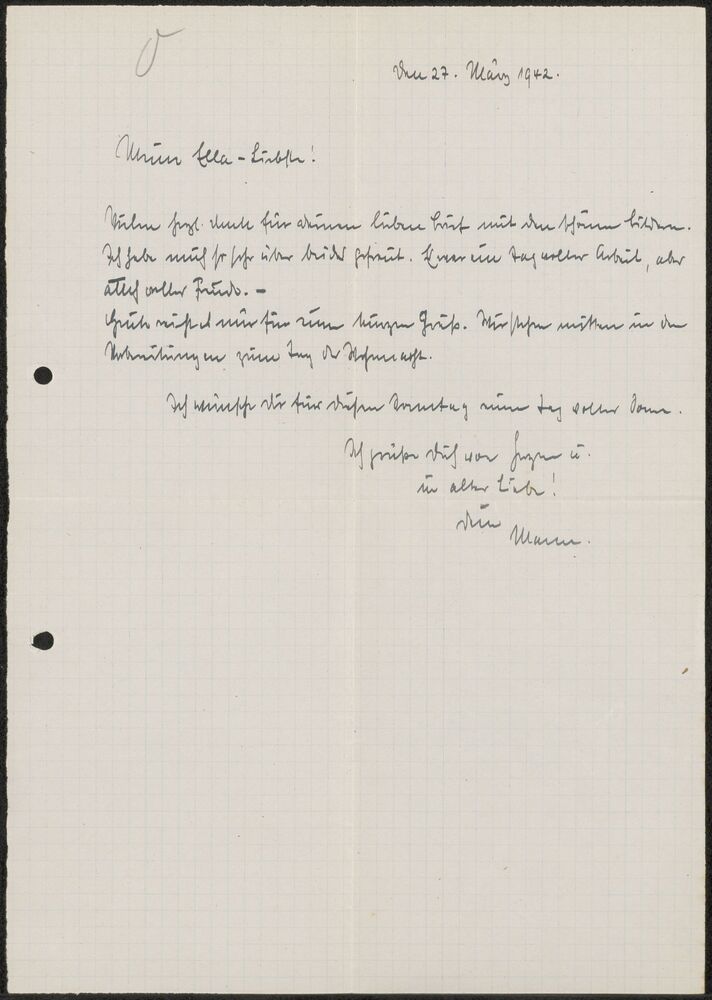 Den 27. März 1942.
Meine Ella-Liebste!
Vielen herzl. Dank für deinen lieben Brief mit den schönen Bildern.
Ich habe mich so sehr über beides gefreut. ein Tag voller Arbeit, aber
auch voller Freude. -
Heute reicht es nur für einen kurzen Gruß. Wir stehen mitten in den
Vorbereitungen zum Tag der Wehrmacht.
Ich wünsche Dir für diesen Sonntag einen Tag voller Sonne.
Ich grüße Dich von Herzen u.
in alter Liebe!
Dein
Mann.